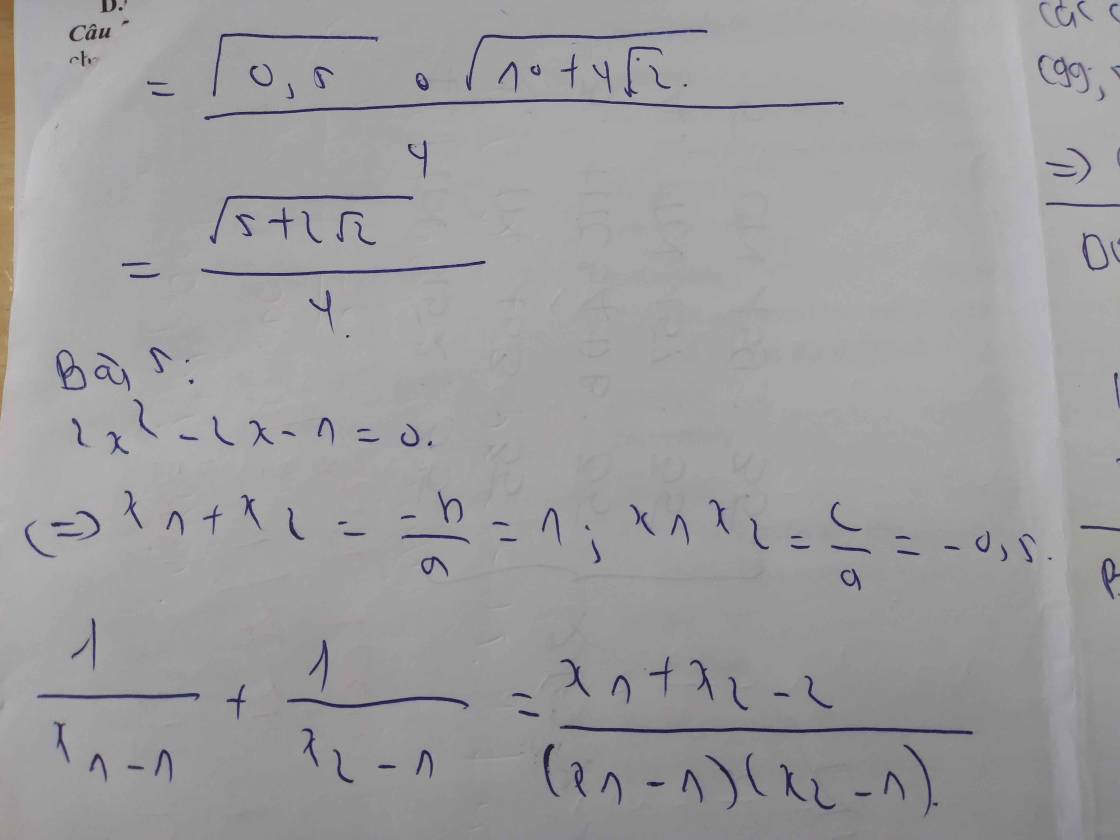 D.
Câu
= √0,5 . √(10+4√2).
4
= √(5+2√2)
4.
Bài 5:
2x² - 2x - 1 = 0.
(=) x1 + x2 = -b/a = 1; x1x2 = c/a = -0,5.
1/(x1 - 1) + 1/(x2 - 1) = (x1 + x2 - 2)/((x1 - 1)(x2 - 1)).
=)